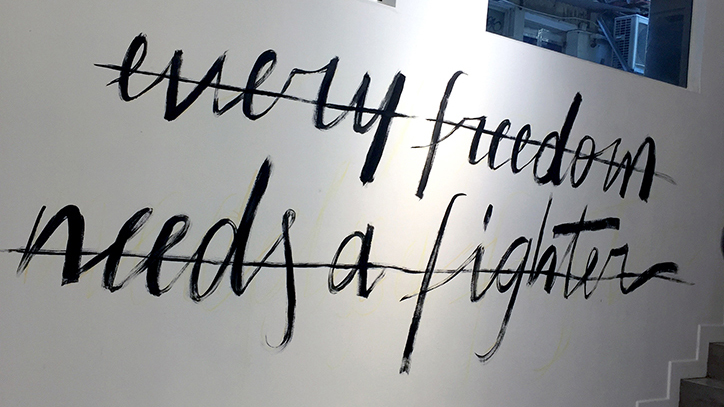 every freedom
needs a fighter